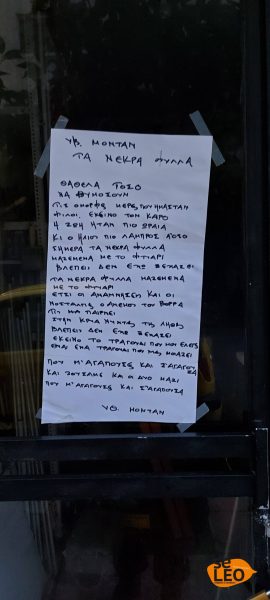 ΥΒ. ΜΟΝΤΑΝ
ΤΑ ΝΕΚΡΑ ΦΥΛΛΑ
ΘΑΘΕΛΑ ΤΟΣΟ
ΝΑ ΘΥΜΟΣΟΥΝ
ΤΙΣ ΟΜΟΡΦΕΣ ΜΕΡΕΣ ΠΟΥ ΗΜΑΣΤΑΝ
ΦΙΛΟΙ. ΕΚΕΙΝΟ ΤΟΝ ΚΑΙΡΟ
Η ΖΩΗ ΗΤΑΝ ΠΙΟ ΩΡΑΙΑ
ΚΙ Ο ΗΛΙΟΣ ΠΙΟ ΛΑΜΠΡΟΣ
ΣΗΜΕΡΑ ΤΑ ΝΕΚΡΑ ΦΥΛΛΑ
ΜΑΖΕΜΕΝΑ ΜΕ ΤΟ ΦΤΙΑΡΙ
ΒΛΕΠΕΙΣ ΔΕΝ ΕΧΩ ΞΕΧΑΣΕΙ
ΤΑ ΝΕΚΡΑ ΦΥΛΛΑ ΜΑΖΕΜΕΝΑ
ΜΕ ΤΟ ΦΤΙΑΡΙ
ΕΤΣΙ ΟΙ ΑΝΑΜΝΗΣΕΙΣ ΚΑΙ ΟΙ
Ο ΑΝΕΜΟΣ ΤΟΥ ΒΟΡΡΑ
ΤΙΣ ΠΑΙΡΝΕΙ
ΣΤΗΝ ΚΡΥΑ ΝΥΧΤΑ ΤΗΣ ΛΗΘΗΣ
ΒΛΕΠΕΙΣ ΔΕΝ ΕΧΩ ΞΕΧΑΣΕΙ
ΕΚΕΙΝΟ ΤΟ ΤΡΑΓΟΥΔΙ ΠΟΥ ΜΟΥ ΕΛΕΓΕΣ
ΕΙΝΑΙ ΕΝΑ ΤΡΑΓΟΥΔΙ ΠΟΥ ΜΑΣ ΜΟΙΑΖΕΙ
ΠΟΥ Μ'ΑΓΑΠΟΥΣΕΣ ΚΑΙ Σ'ΑΓΑΠΟΥΣΑ
ΚΑΙ ΖΟΥΣΑΜΕ ΚΑΙ ΟΙ ΔΥΟ ΜΑΖΙ
ΠΟΥ Μ'ΑΓΑΠΟΥΣΕΣ ΚΑΙ Σ'ΑΓΑΠΟΥΣΑ
ΥΒ. ΜΟΝΤΑΝ
se
LEO